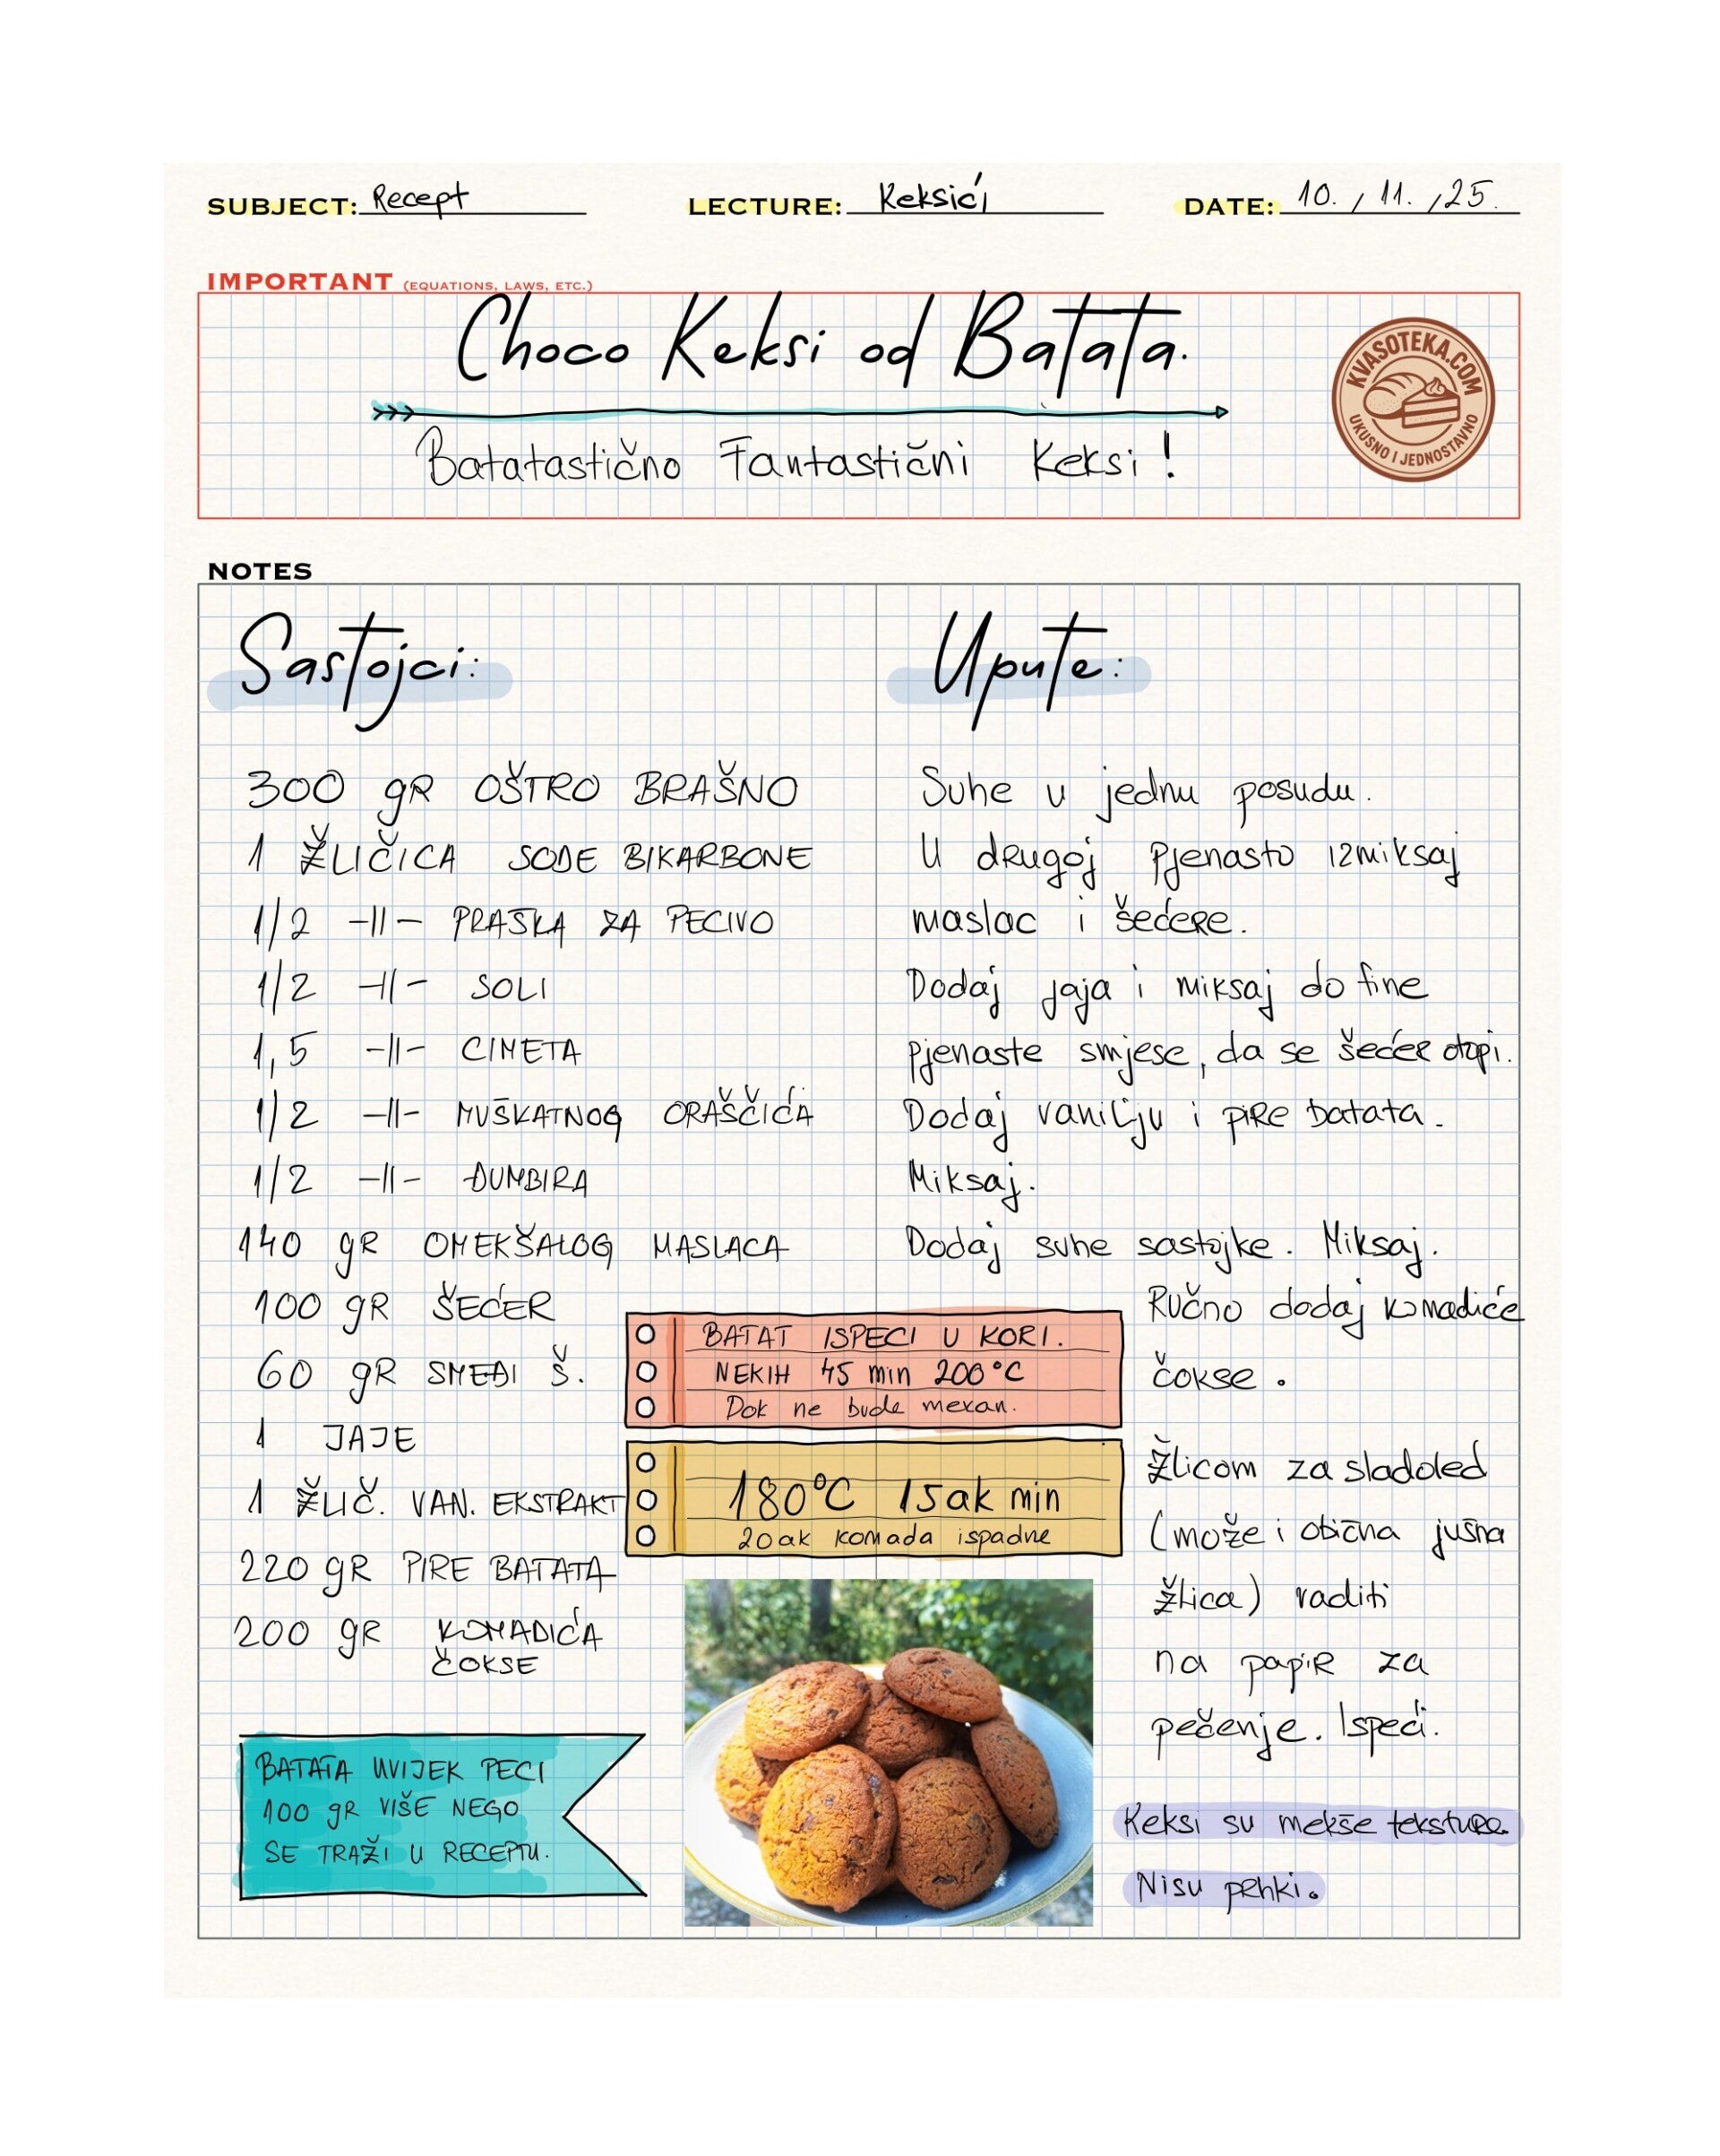 SUBJECT: Recept
LECTURE: Keksići
DATE: 10. / 11. /25.
IMPORTANT (EQUATIONS, LAWS, ETC.)
Choco Keksi od Batata.
Batatastično Fantastični Keksi!
KVASOTEKA.COM
UKUSNO I JEDNOSTAVNO
NOTES
Sastojci:
300 gR OŠTRO BRAŠNO
1 ŽLIČICA SODE BIKARBONE
1/2 -||- PRAŠKA ZA PECIVO
1/2 -||- SOLI
1,5 -||- CIMETA
1/2 -||- MUŠKATNOG ORAŠČIĆA
1/2 -||- ĐUMBIRA
140 gR OMEKŠALOG MASLACA
100 gR ŠEĆER
60 gR SMEĐI Š.
1 JAJE
1 ŽLIČ. VAN. EKSTRAKT
220 gR PIRE BATATA
200 gR KOMADIĆA
ČOKSE
BATATA UVIJEK PECI
100 gR VIŠE NEGO
SE TRAŽI U RECEPTU.
Upute:
Suhe u jednu posudu.
U drugoj pjenasto izmiksaj
maslac i šećere.
Dodaj jaja i miksaj do fine
pjenaste smjese, da se šećer otopi.
Dodaj vaniliju i pire batata.
Miksaj.
Dodaj suhe sastojke. Miksaj.
Ručno dodaj komadiće
čokse.
BATAT ISPECI U KORI.
NEKIH 45 min 200°C
Dok ne bude mekan.
180°C 15ak min
20ak komada ispadne
Žlicom za sladoled
(može i obična jušna
žlica) raditi
na papir za
pečenje. Ispeći.
Keksi su mekše teksture.
Nisu prhki.